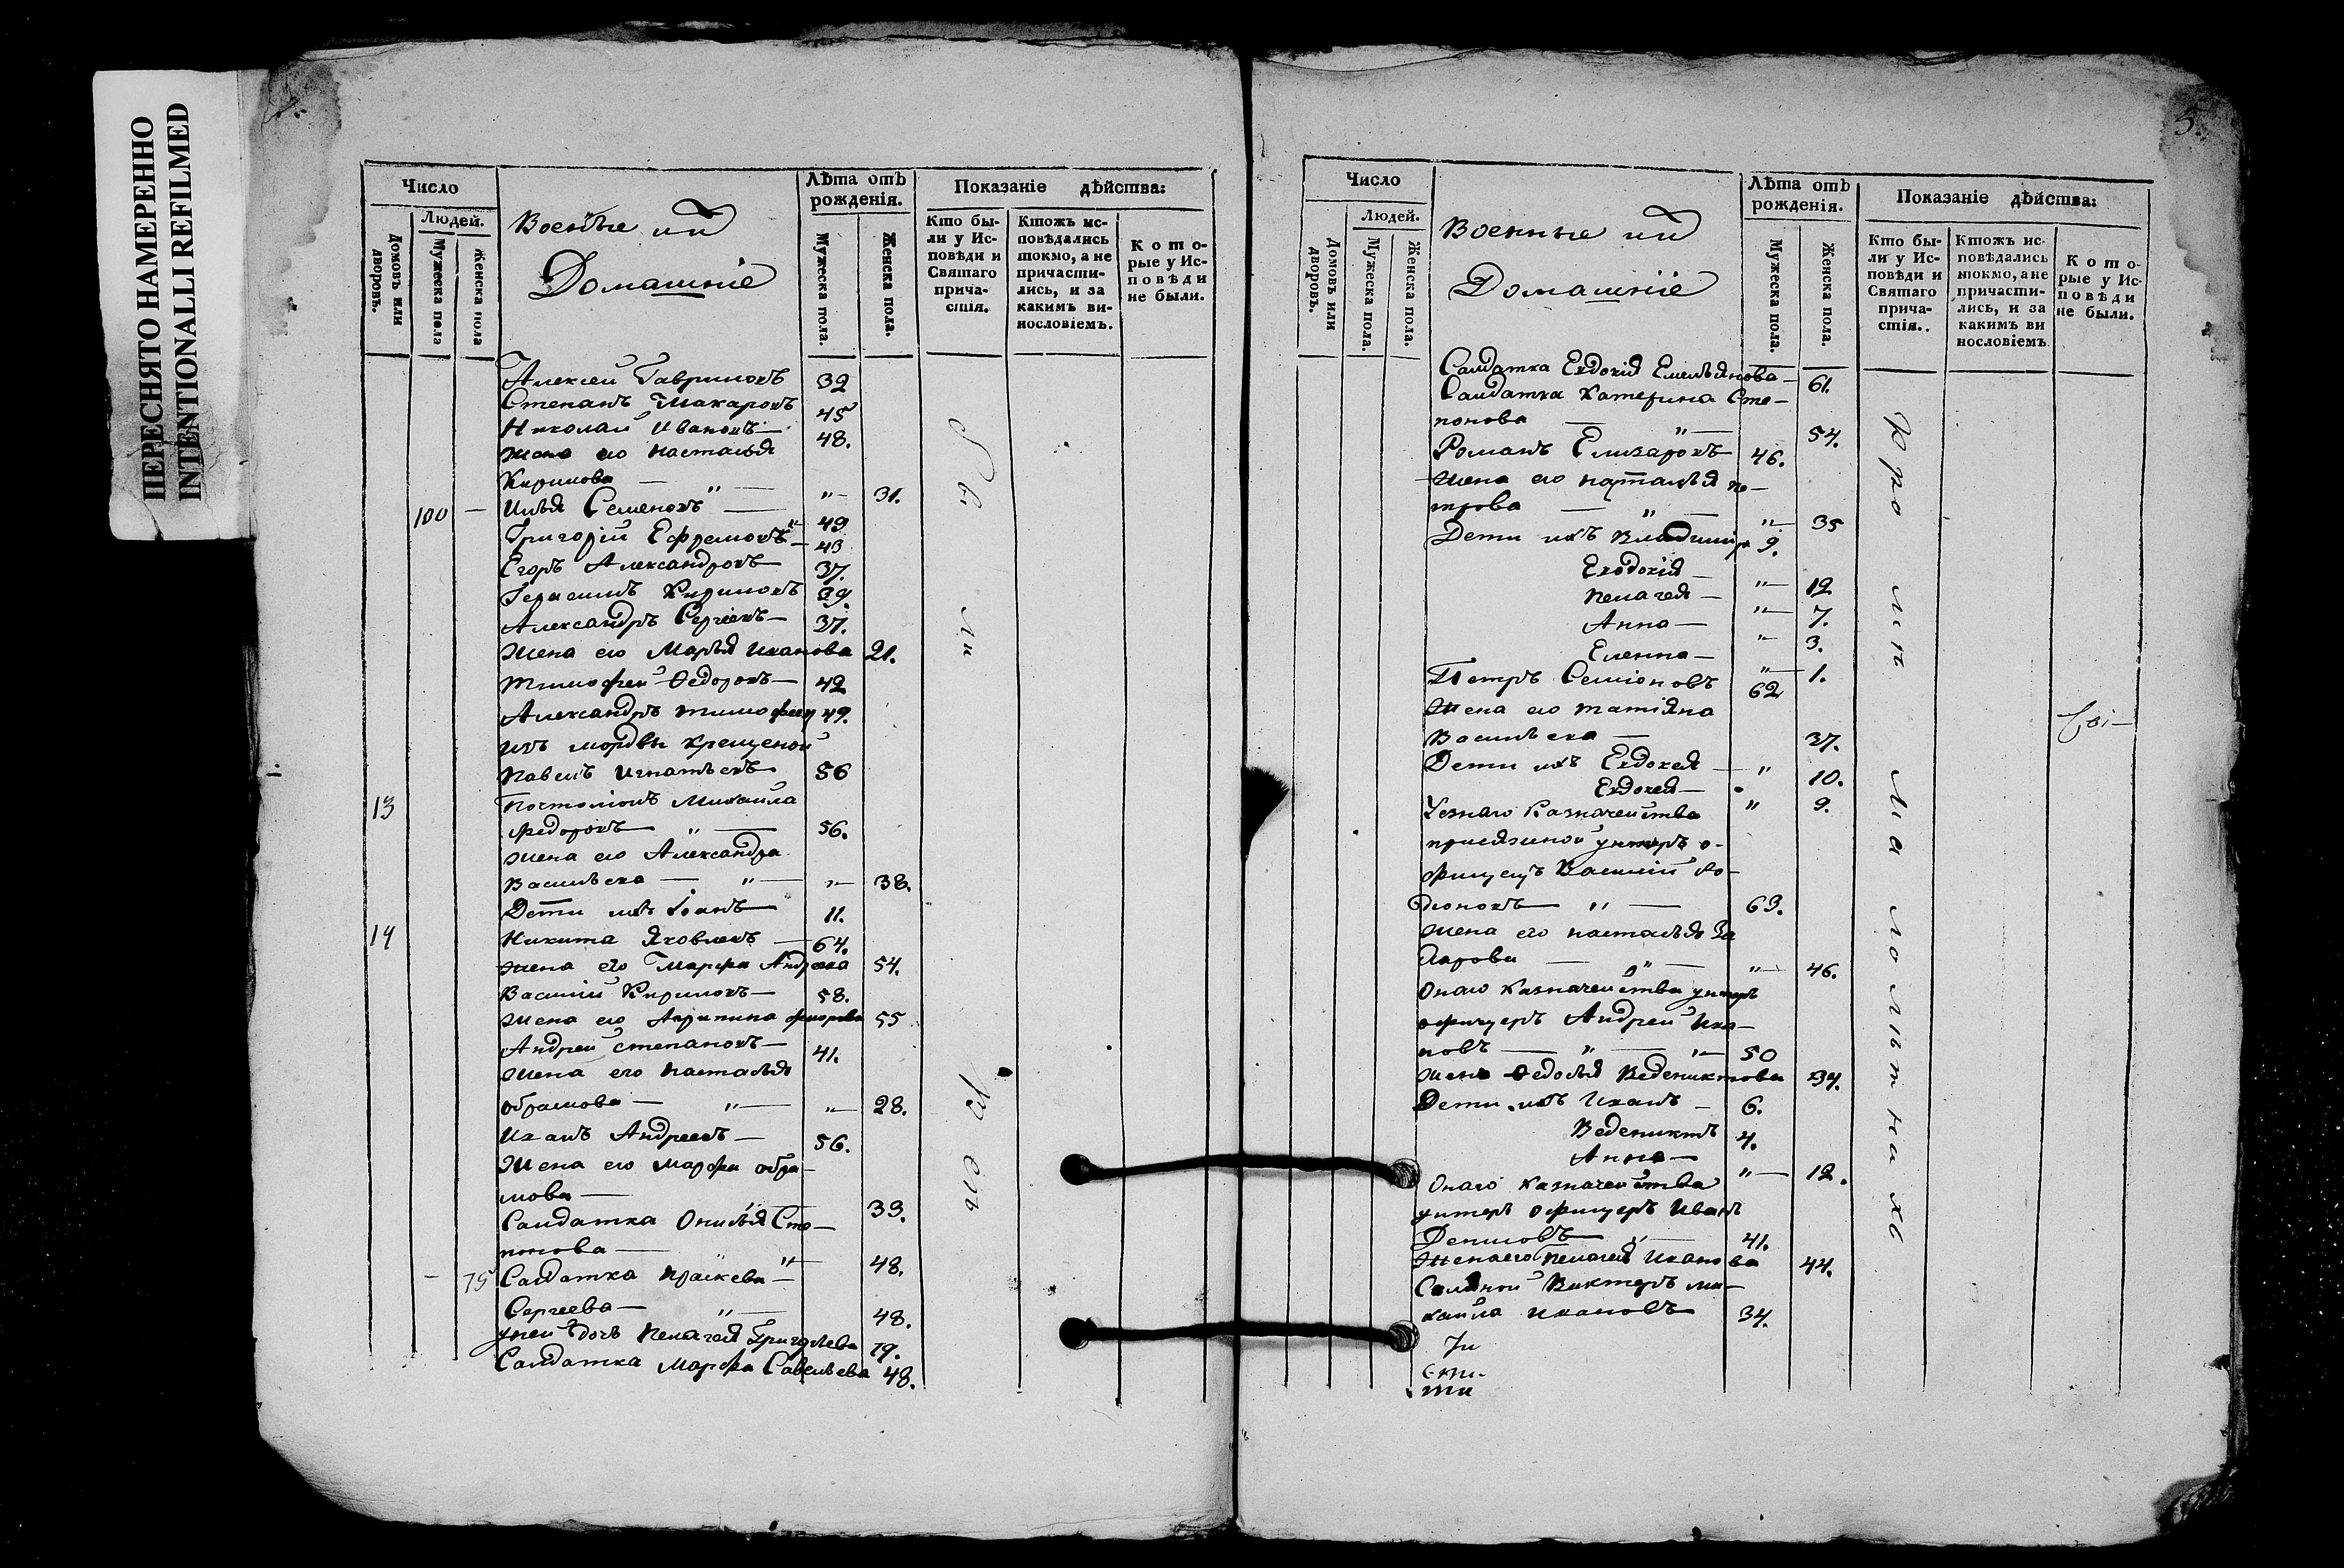 ПЕРЕСНЯТО НАМЕРЕННО
INTENTIONALLI REFILMED
Число
Людей.
Домовъ или дворовъ.
Мужеска пола
Женска пола
Военные ихъ
Домашніе
Лѣта отъ рожденія.
Мужеска пола.
Женска пола.
Показаніе дѣйства:
Кто были у Исповѣди и Святаго причастія.
Ктожъ исповѣдались токмо, а не причастились, и за какимъ винословіемъ.
Которые у Исповѣди не были.
Алексеи Гавриловъ 32
Степанъ Макаровъ 45
Николаи Ивановъ 48.
Жена его Насталья
Кирилова — " — "— 31.
100 — Илья Семеновъ — 49
Григорїи Ефремовъ — 43
Егоръ Александровъ 37.
Герасимъ Кириловъ 39.
Александръ Сергеевъ — 37.
Жена его Марья Иванова 21.
Тимофеи Ѳедоровъ — 42
Александръ Тимофеи 49.
Изъ мордвы крещеной
Павелъ Игнатьевъ 56
13 Почтолїонъ Михаила
Федоровъ " — 56.
Жена его Александра
Васильева — " — "— 38.
Дети ихъ Іоанъ 11.
14 Никита Яковлевъ — 64.
Жена его Марфа Андреева 54.
Василїи Кириловъ — 58.
Жена его Агрипина 55
Андреи Степановъ — 41.
Жена его Насталья
Обрамова — "— "— 28.
Иванъ Андреевъ — 56.
Жена его Марфа Обра-
мова — 33.
Салдатка Онисья Сте-
понова — " 48.
— 75 Салдатка Праскева —
Сергеева — " — 48.
у неи дочь Пелагея Григорьева 19.
Салдатка Марфа Савельева 48.
5.
Число
Людей.
Домовъ или дворовъ.
Мужеска пола.
Женска пола.
Военные ихъ
Домашніе
Лѣта отъ рожденія.
Мужеска пола.
Женска пола.
Показаніе дѣйства:
Кто были у Исповѣди и Святаго причастія..
Ктожъ исповѣдались токмо, а не причастились, и за какимъ винословіемъ
Которые у Исповѣди не были.
Салдатка Евдокїя Емельянова — 61.
Салдатка Катерина Сте-
понова — " — 54.
Романъ Елизаровъ 46.
Жена его Наталья Пе-
трова — " — "— 35
Дети ихъ Владимиръ 9.
Евдокїя — "— 12
Пелагея — "— 7.
Анна — "— 3.
Еленна — "— 1.
Петръ Семїоновъ 62
Жена его Татїяна
Васильева — 37.
Дети ихъ Евдокея — " 10.
Евдокея — " 9.
Уезнаго Казначеиства
присяжной унтеръ о-
фицеръ Василїи Ро-
дїоновъ " — 63.
Жена его Насталья За
харова — " — "— 46.
Онаго казначеиства унтеръ
офицеръ Андреи Ива-
новъ — " — "— 50
Жена Ѳедосья Веденихтова 34.
Дети ихъ Иванъ — 6.
Веденихтъ 4.
Анна — "— 12.
Онаго казначеиства
унтеръ офицеръ Иванъ
Денисовъ " — 41.
Жена его Пелагея Иванова 44.
Соляной Вахтеръ Ми-
хаила Ивановъ 34.